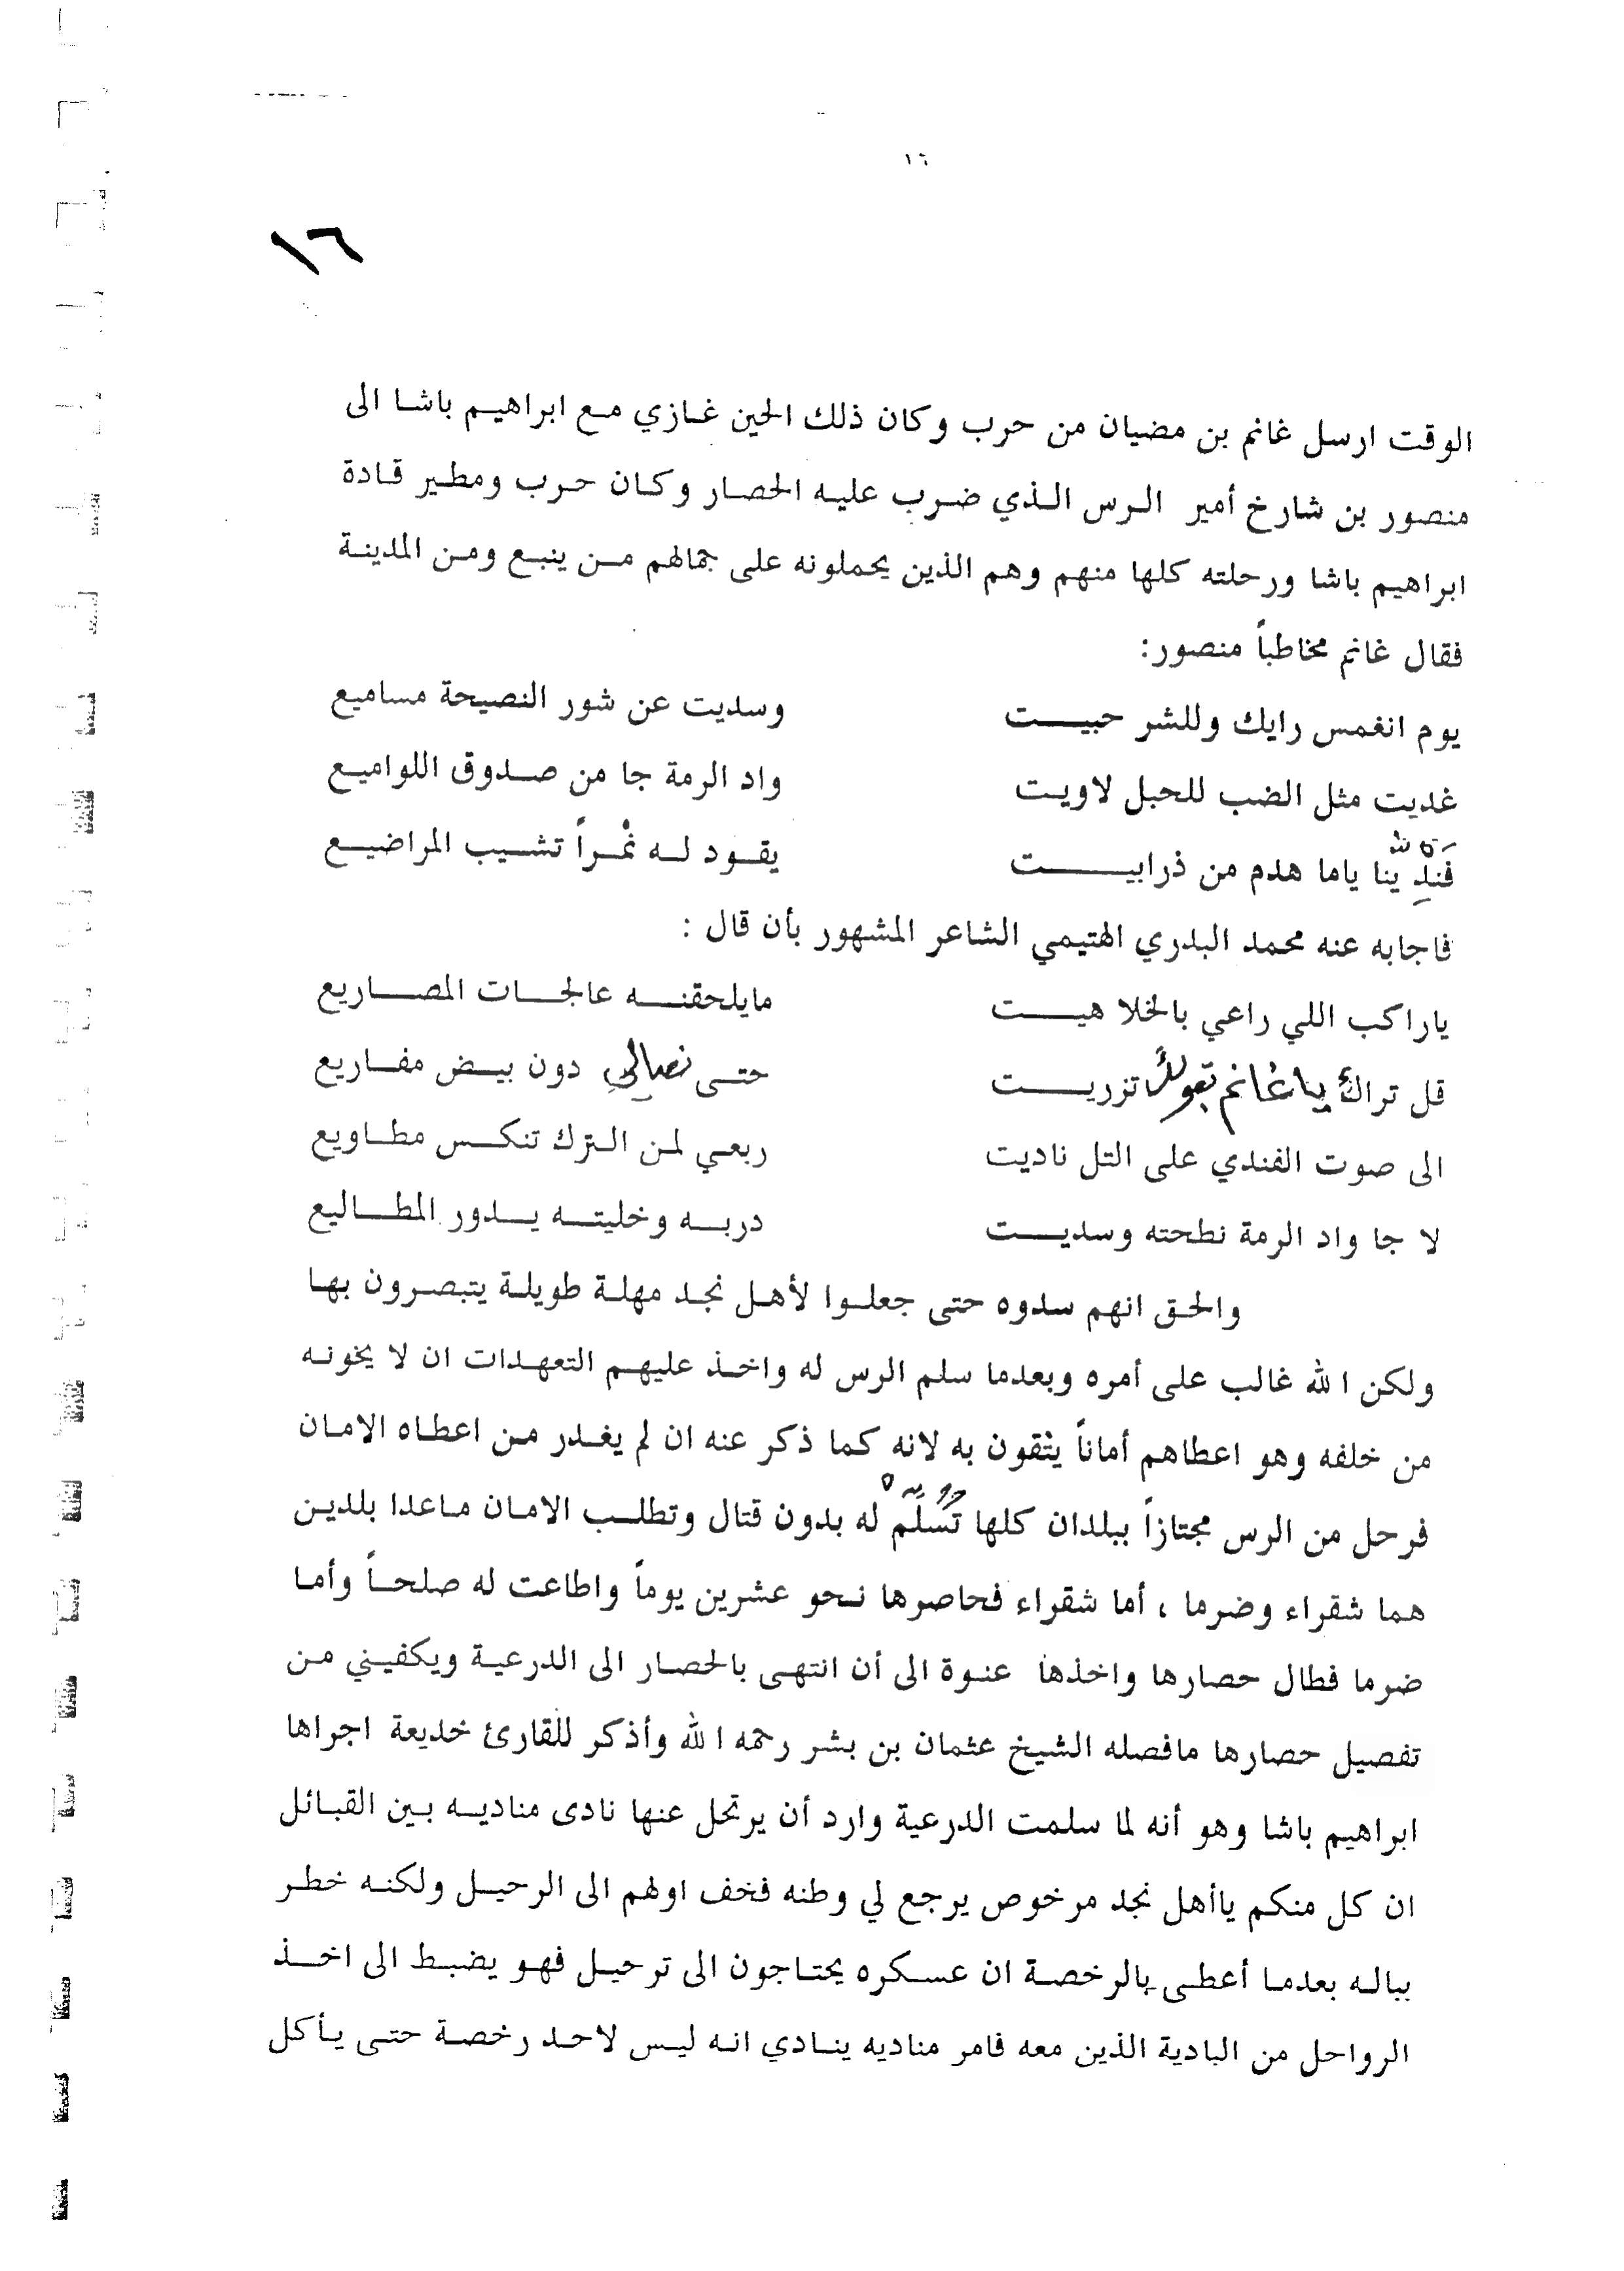 ١٦
١٦
الوقت ارسل غانم بن مضيان من حرب وكان ذلك الحين غازي مع ابراهيم باشا الى
منصور بن شارخ أمير الرس الذي ضرب عليه الحصار وكان حرب ومطير قادة
ابراهيم باشا ورحلته كلها منهم وهم الذين يحملونه على جمالهم من ينبع ومن المدينة
فقال غانم مخاطباً منصور:
يوم انغمس رايك وللشر حبيت وسديت عن شور النصيحة مساميع
غديت مثل الضب للحبل لاويت واد الرمة جا من صدوق اللواميع
فندينا ياما هدم من ذرابيت يقود له نمراً تشيب المراضيع
فاجابه عنه محمد البدري الهتيمي الشاعر المشهور بأن قال :
ياراكب اللي راعي بالخلا هيت مايلحقنه عالجات المصاريع
قل تراك ياغانم تزريت حتى نصالي دون بيض مفاريع
الى صوت الفندي على التل ناديت ربعي لمن الترك تنكس مطاويع
لا جا واد الرمة نطحته وسديت دربه وخليته يدور المطاليع
والحق انهم سدوه حتى جعلوا لأهل نجد مهلة طويلة يتبصرون بها
ولكن الله غالب على أمره وبعدما سلم الرس له واخذ عليهم التعهدات ان لا يخونه
من خلفه وهو اعطاهم أماناً يثقون به لانه كما ذكر عنه ان لم يغدر من اعطاه الامان
فرحل من الرس مجتازاً ببلدان كلها تُسُلِّم له بدون قتال وتطلب الامان ماعدا بلدين
هما شقراء وضرما ، أما شقراء فحاصرها نحو عشرين يوماً واطاعت له صلحاً وأما
ضرما فطال حصارها واخذها عنوة الى أن انتهى بالحصار الى الدرعية ويكفيني من
تفصيل حصارها مافصله الشيخ عثمان بن بشر رحمه الله وأذكر للقارئ خديعة اجراها
ابراهيم باشا وهو أنه لما سلمت الدرعية وارد أن يرتحل عنها نادى مناديه بين القبائل
ان كل منكم ياأهل نجد مرخوص يرجع لي وطنه فخف اولهم الى الرحيل ولكنه خطر
بباله بعدما أعطى بالرخصة ان عسكره يحتاجون الى ترحيل فهو يضبط الى اخذ
الرواحل من البادية الذين معه فامر مناديه ينادي انه ليس لاحد رخصة حتى يأكل